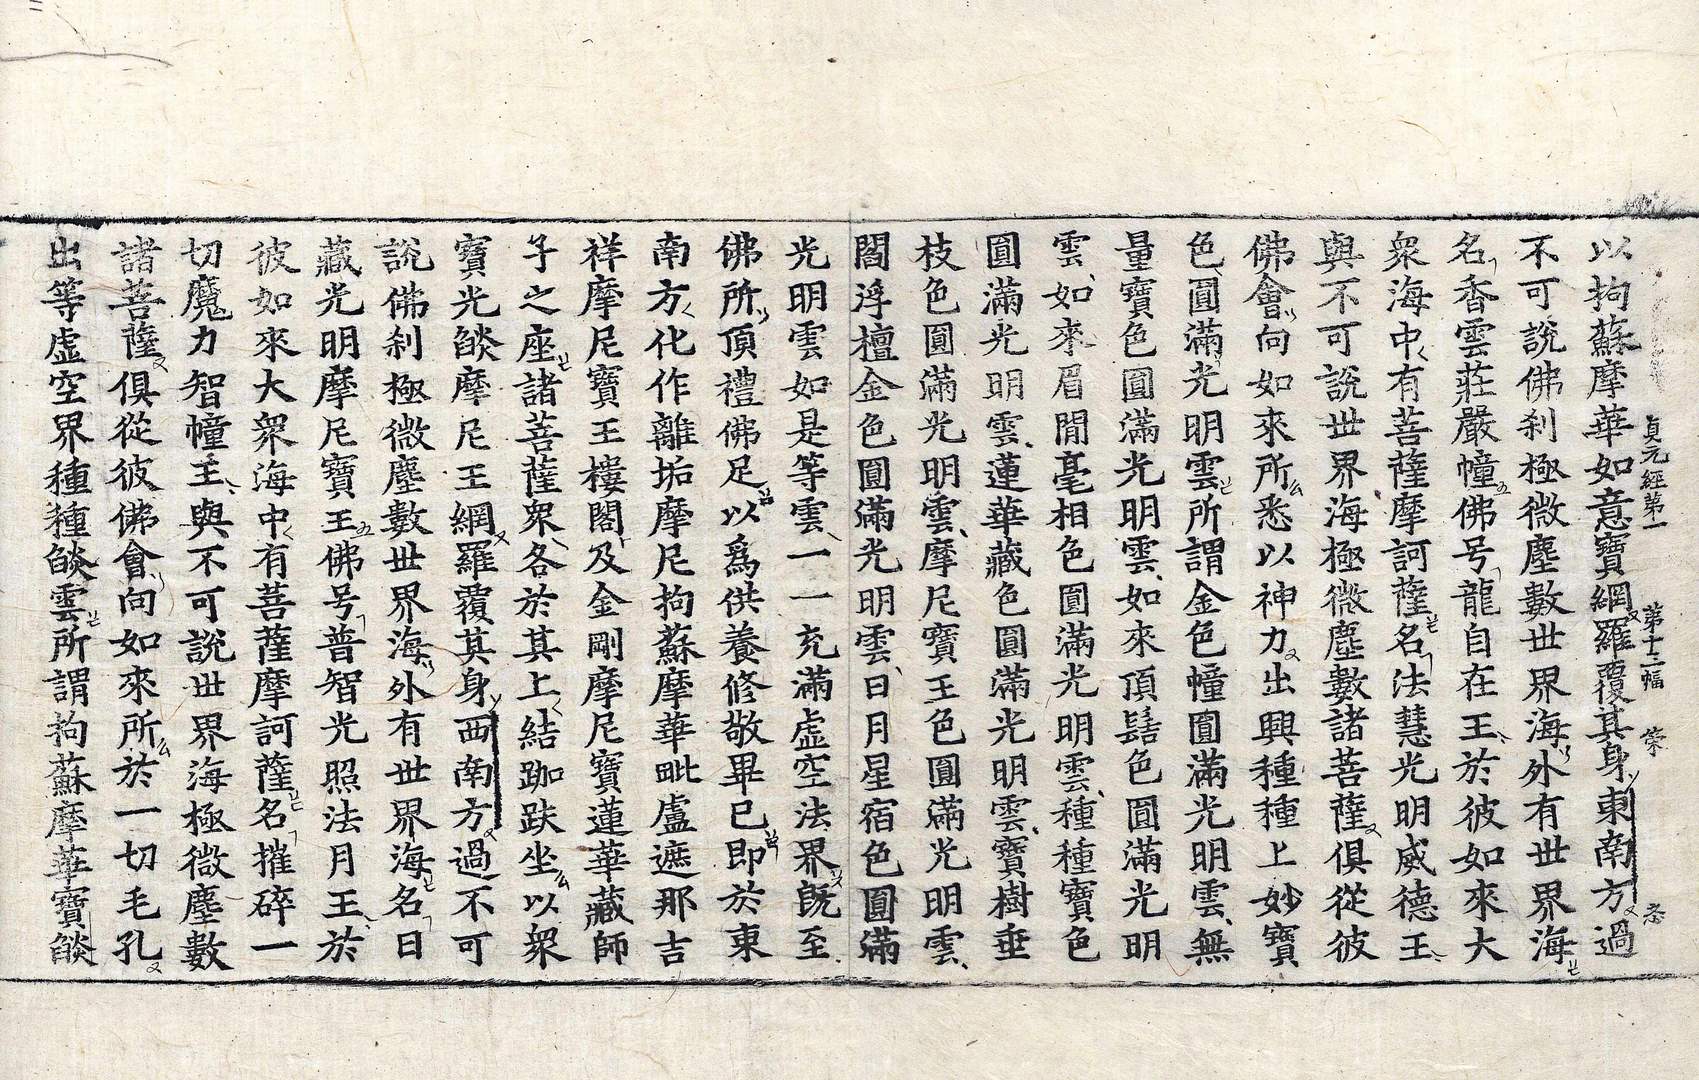 貞元經第一 第十二幅 策 岑
以拘蘇摩華如意寶網羅覆其身東南方過
不可說佛刹極微塵數世界海外有世界海
名香雲莊嚴幢佛号龍自在王於彼如來大
衆海中有菩薩摩訶薩名法慧光明威德王
與不可說世界海極微塵數諸菩薩俱從彼
佛會向如來所悉以神力出興種種上妙寶
色圓滿光明雲所謂金色幢圓滿光明雲無
量寶色圓滿光明雲如來頂髻色圓滿光明
雲如來眉閒毫相色圓滿光明雲種種寶色
圓滿光明雲蓮華藏色圓滿光明雲寶樹垂
枝色圓滿光明雲摩尼寶王色圓滿光明雲
閻浮檀金色圓滿光明雲日月星宿色圓滿
光明雲如是等雲一一充滿虛空法界旣至
佛所頂禮佛足以爲供養修敬畢已即於東
南方化作離垢摩尼拘蘇摩華毗盧遮那吉
祥摩尼寶王樓閣及金剛摩尼寶蓮華藏師
子之座諸菩薩衆各於其上結跏趺坐以衆
寶光燄摩尼王網羅覆其身西南方過不可
說佛刹極微塵數世界海外有世界海名日
藏光明摩尼寶王佛号普智光照法月王於
彼如來大衆海中有菩薩摩訶薩名摧碎一
切魔力智幢王與不可說世界海極微塵數
諸菩薩俱從彼佛會向如來所於一切毛孔
出等虛空界種種燄雲所謂拘蘇摩華寶燄